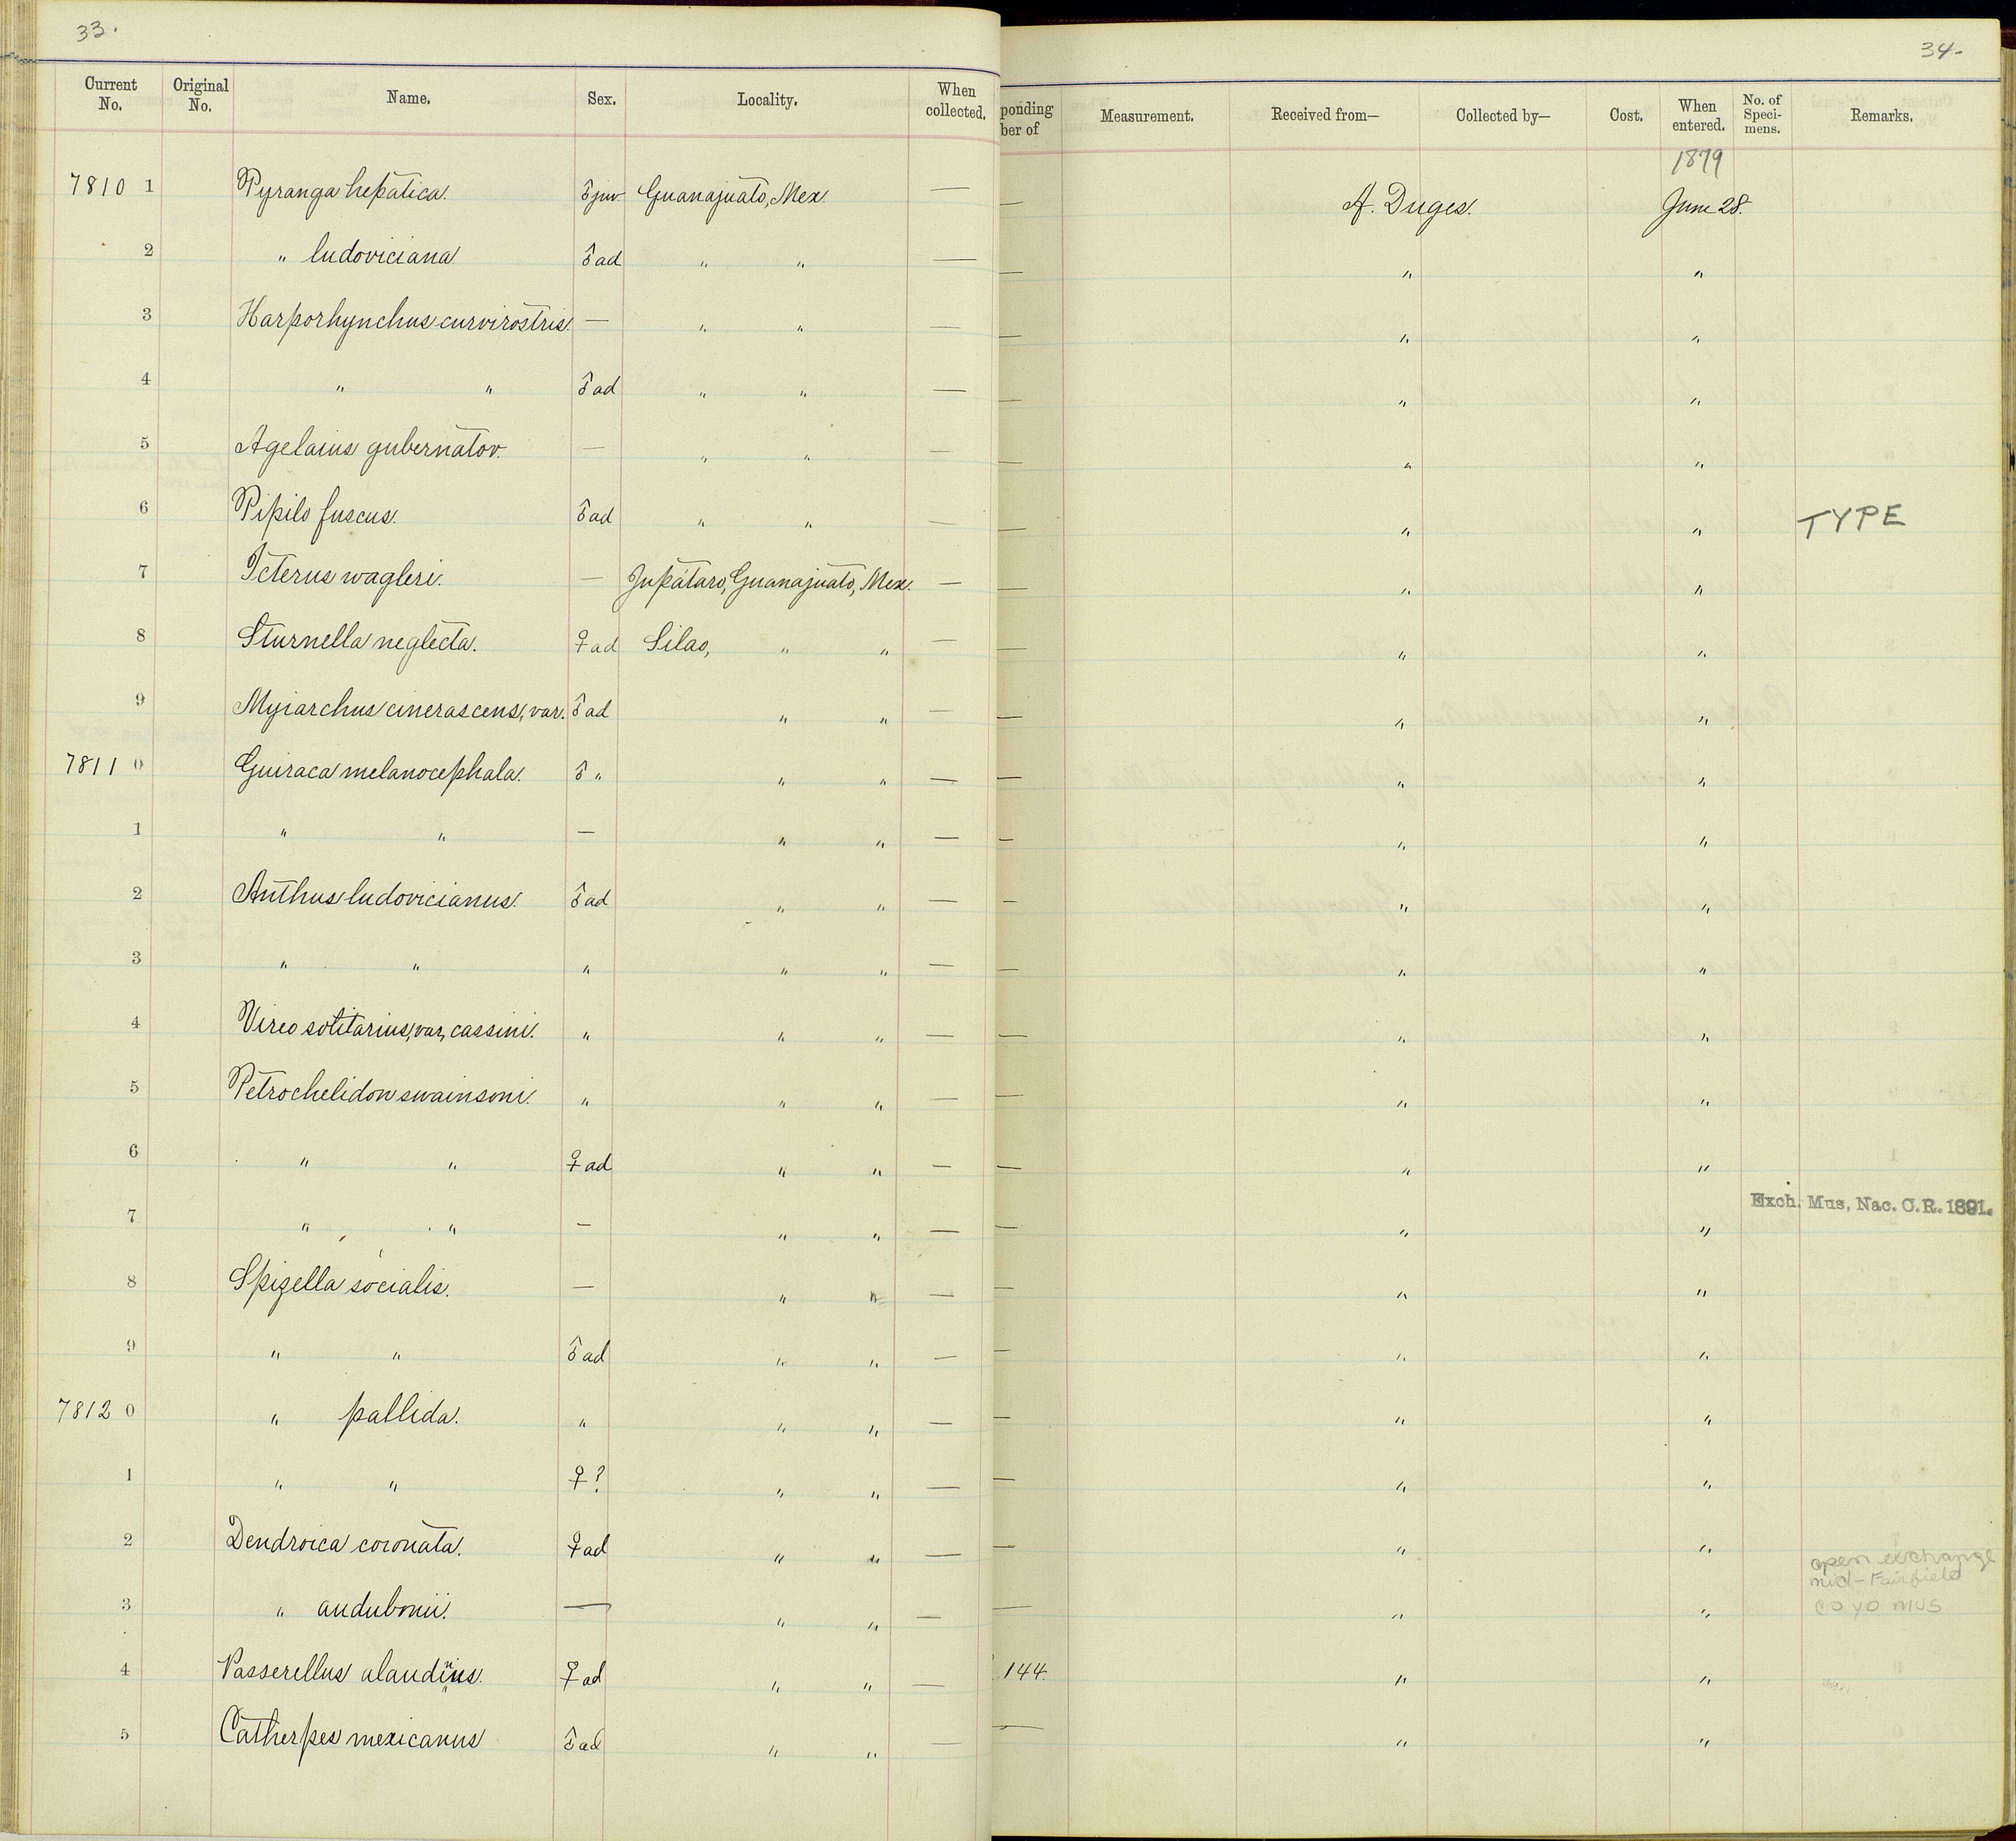 33.
34-
Current No. Original No. Name. Sex. Locality. When collected. ponding ber of Measurement. Received from— Collected by— Cost. When entered. No. of Speci-mens. Remarks.
1879
7810 1 Pyranga hepatica. ♂ juv Guanajuato, Mex. — — A. Duges. June 28.
2 " ludoviciana ♂ ad " " — — " "
3 Harporhynchus curvirostris — " " — — " "
4 " " ♂ ad " " — — " "
5 Agelaius gubernator. — " " — — " "
6 Pipilo fuscus. ♂ ad " " — — " " TYPE
7 Icterus wagleri. — Jupátaro, Guanajuato, Mex. — — " "
8 Sturnella neglecta. ♀ ad Silao, " " — — " "
9 Myiarchus cinerascens, var. ♂ ad " " — — " "
7811 0 Guiraca melanocephala. ♂ " " " — — " "
1 " " — " " — — " "
2 Anthus ludovicianus. ♂ ad " " — — " "
3 " " " " " — — " "
4 Vireo solitarius, var, cassini. " " " — — " "
5 Petrochelidon swainsoni. " " " — — " "
6 " " ♀ ad " " — — " "
7 " " — " " — — " " Exch. Mus, Nac. C.R. 1891.
8 Spizella socialis. — " " — — " "
9 " " ♂ ad " " — — " "
7812 0 " pallida. " " " — — " "
1 " " ♀? " " — — " "
2 Dendroica coronata. ♀ ad " " — — " "
open exchange
mid-Fairfield
co yo mus
3 " audubonii. — " " — — " "
4 Passerellus alaudinus. ♀ ad " " — 144. " "
5 Catherpes mexicanus ♂ ad " " — — " "